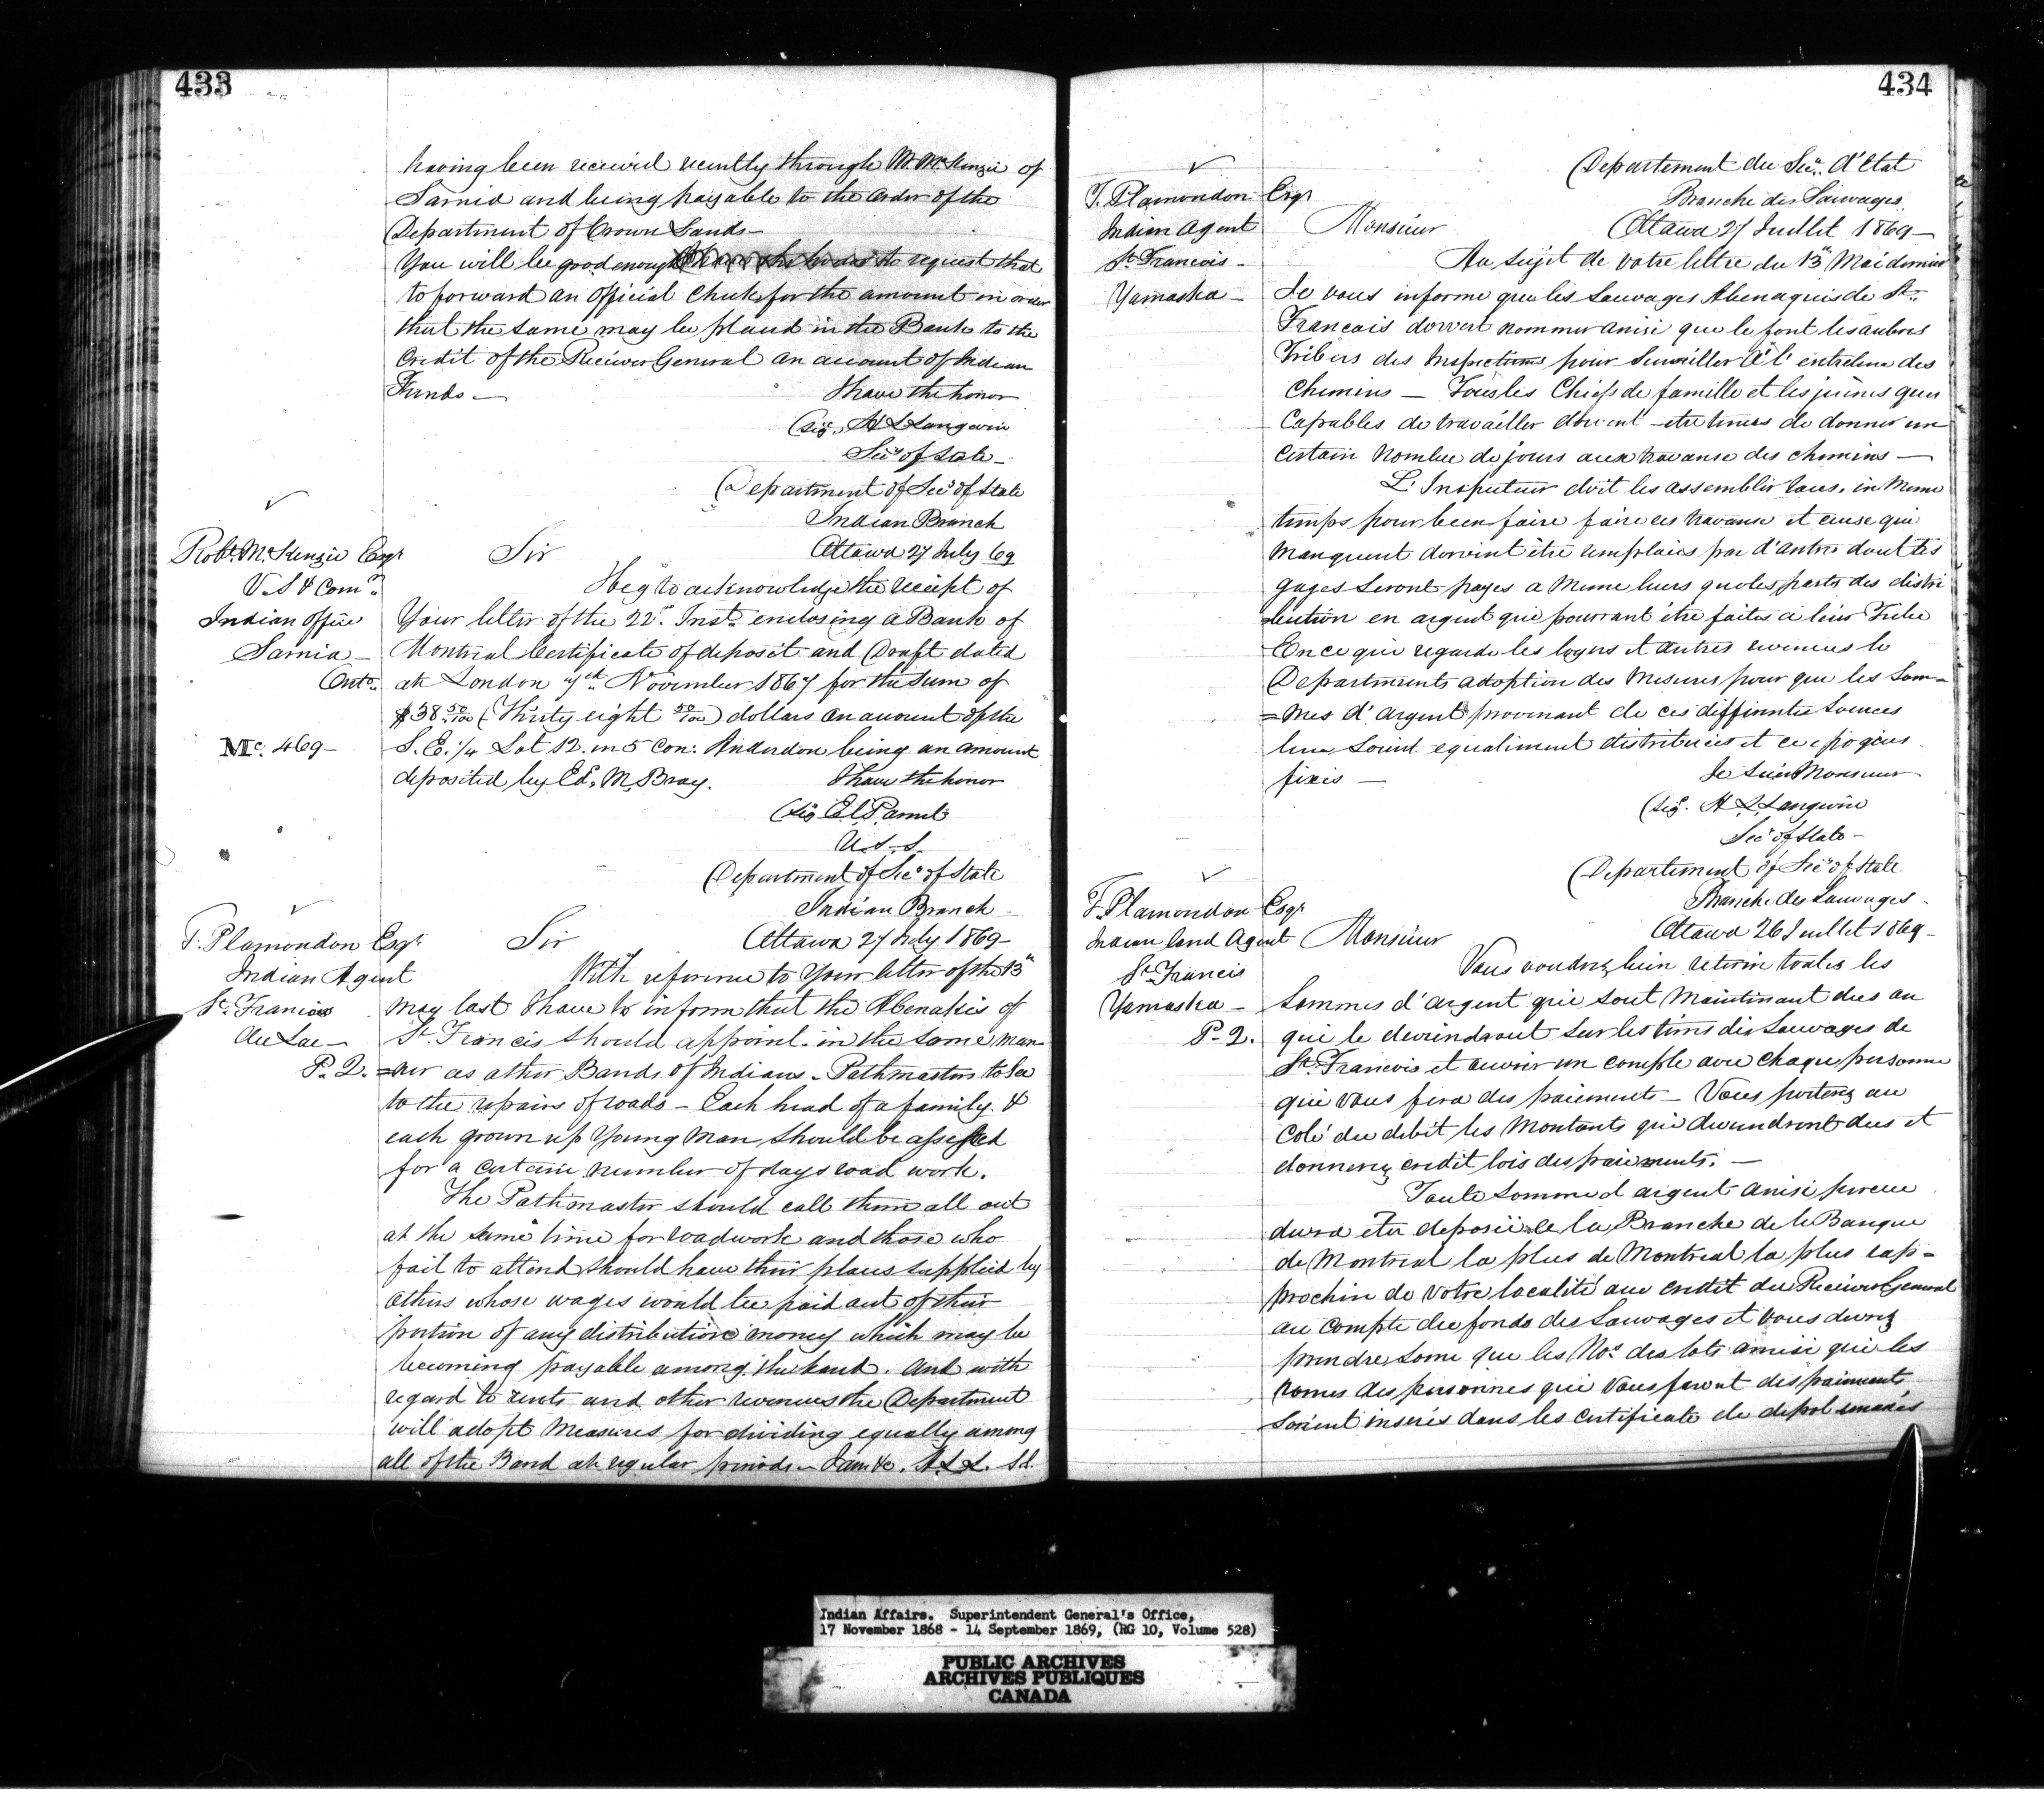 433
having been received recently through Mr. McKenzie of
Sarnia and being payable to the order of the
Department of Crown Lands—
You will be good enough to request that
to forward an Official Check for the amount in order
that the same may be placed in the Bank to the
Credit of the Receiver General on account of Indian
Funds—
I have the honor
(sig. H L Langevin
Sec. of State—
Department of Sec. of State
Indian Branch
Ottawa 27 July 69
Robt. McKenzie Esqr
V.S & Comr.
Indian Office
Sarnia—
Onto.
Mc. 469—
Sir
I beg to acknowledge the receipt of
Your letter of the 22nd. Inst. enclosing a Bank of
Montreal Certificate of deposit and Draft dated
at London 7th. November 1867 for the Sum of
$38 50/100 (Thirty eight 50/100) dollars on account of the
S.E. 1/4 Lot 12. in 5 Con: Anderdon being an amount
deposited by Ed. M. Bray.
I have the honor
(sig E.C. Parent
U.S.S.
Department of Sec. of State
Indian Branch
Ottawa 27 July 1869—
F. Plamondon Esqr
Indian Agent
St. Francis
du Lac—
P.Q.
Sir
With reference to Your letter of the 13th
May last I have to inform that the Abenakis of
St. Francis should appoint in the same man-
=ner as other Bands of Indians. Pathmasters to see
to the repairs of roads— Each head of a family &
each grown up Young Man should be assessed
for a certain number of days road work.
The Pathmaster should call them all out
at the same time for roadwork and those who
fail to attend should have their places supplied by
others whose wages would be paid out of their
portion of any distribution money which may be
becoming payable among the band. And with
regard to rents and other revenues the Department
will adopt Measures for dividing equally among
all of the Band at regular periods— I am &c. H.L.L. Sd.
434
Departement du Sec. d'Etat
Branche des Sauvages
Ottawa 27 Juillet 1869—
F. Plamondon Esqr
Indian Agent
St. Francois—
Yamaska—
Monsieur
Au sujet de votre lettre du 13 Mai dernier
Je vous informe que les Sauvages Abenaquis de St.
Francois doivent nommer ainsi que le font les autres
Tribus des Inspecteurs pour Surveiller à l' entretien des
Chemins— Tous les Chefs de famille et les jeunes gens
Capables de travailler doivent etre tenus de donner un
certain Nombre de jours aux travaux des chemins—
L'Inspecteur doit les assembler tous. in Meme
temps pour bien faire faire ces travaux et ceux qui
Manquent doivent être remplacés par d'autres dont les
gages seront payes a Meme leurs quotes parts des distri
-bution en argent que pourrant être faites a leur Tribu
En ce qui regarde les loyers et autres revenus le
Departments adoption des Mesures pour que les Som=
=mes d'argent provenant de ces differentes sources
leur soient equaliment distribuées et ce epoques
fixes—
Je suis Monsieur
(sig. H L Langevin
Sec. of State—
Departement of Sec. of State
Branche des Sauvages.
Ottawa 26 Juillet 1869—
F. Plamondon Esqr
Indian land Agent
St. Francis
Yamaska—
P.Q.
Monsieur
Vous voudrez bien retirer toutes les
Sommes d'argent qui sont Maintinant dues au
qui le deviendront sur les terres des Sauvages de
St. Francois et ouvrir un compte avec chaque personne
qui vous fera des paiements— Vous porterez au
Colé du debit les Montants qui deviendront dus et
donnerez credit lois des paiements.—
Toute Somme d argent ainsi percue
devra être deposée a la Branche de la Banque
de Montreal la plus de Montreal la plus rap=
prochin de votre localité au credit du Receiver General
au Compte du fonds des Sauvages et vous devrez
prendre soin que les Nos. des lots ainsi que les
Nomes des personnes qui vous feront des paiments
soient insérés dans les certificats de depot
Indian Affairs. Superintendent General's Office,
17 November 1868 - 14 September 1869, (RG 10, Volume 528)
PUBLIC ARCHIVES
ARCHIVES PUBLIQUES
CANADA